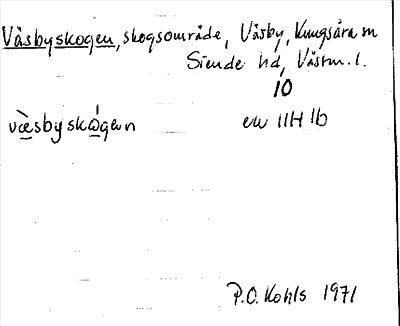 Väsbyskogen, skogsområde, Väsby, Kungsåra sn
Siende hd, Västm. l.
10
væ̀sbyskɷ́gen
ek 11H 1b
P.O. Kohls 1971